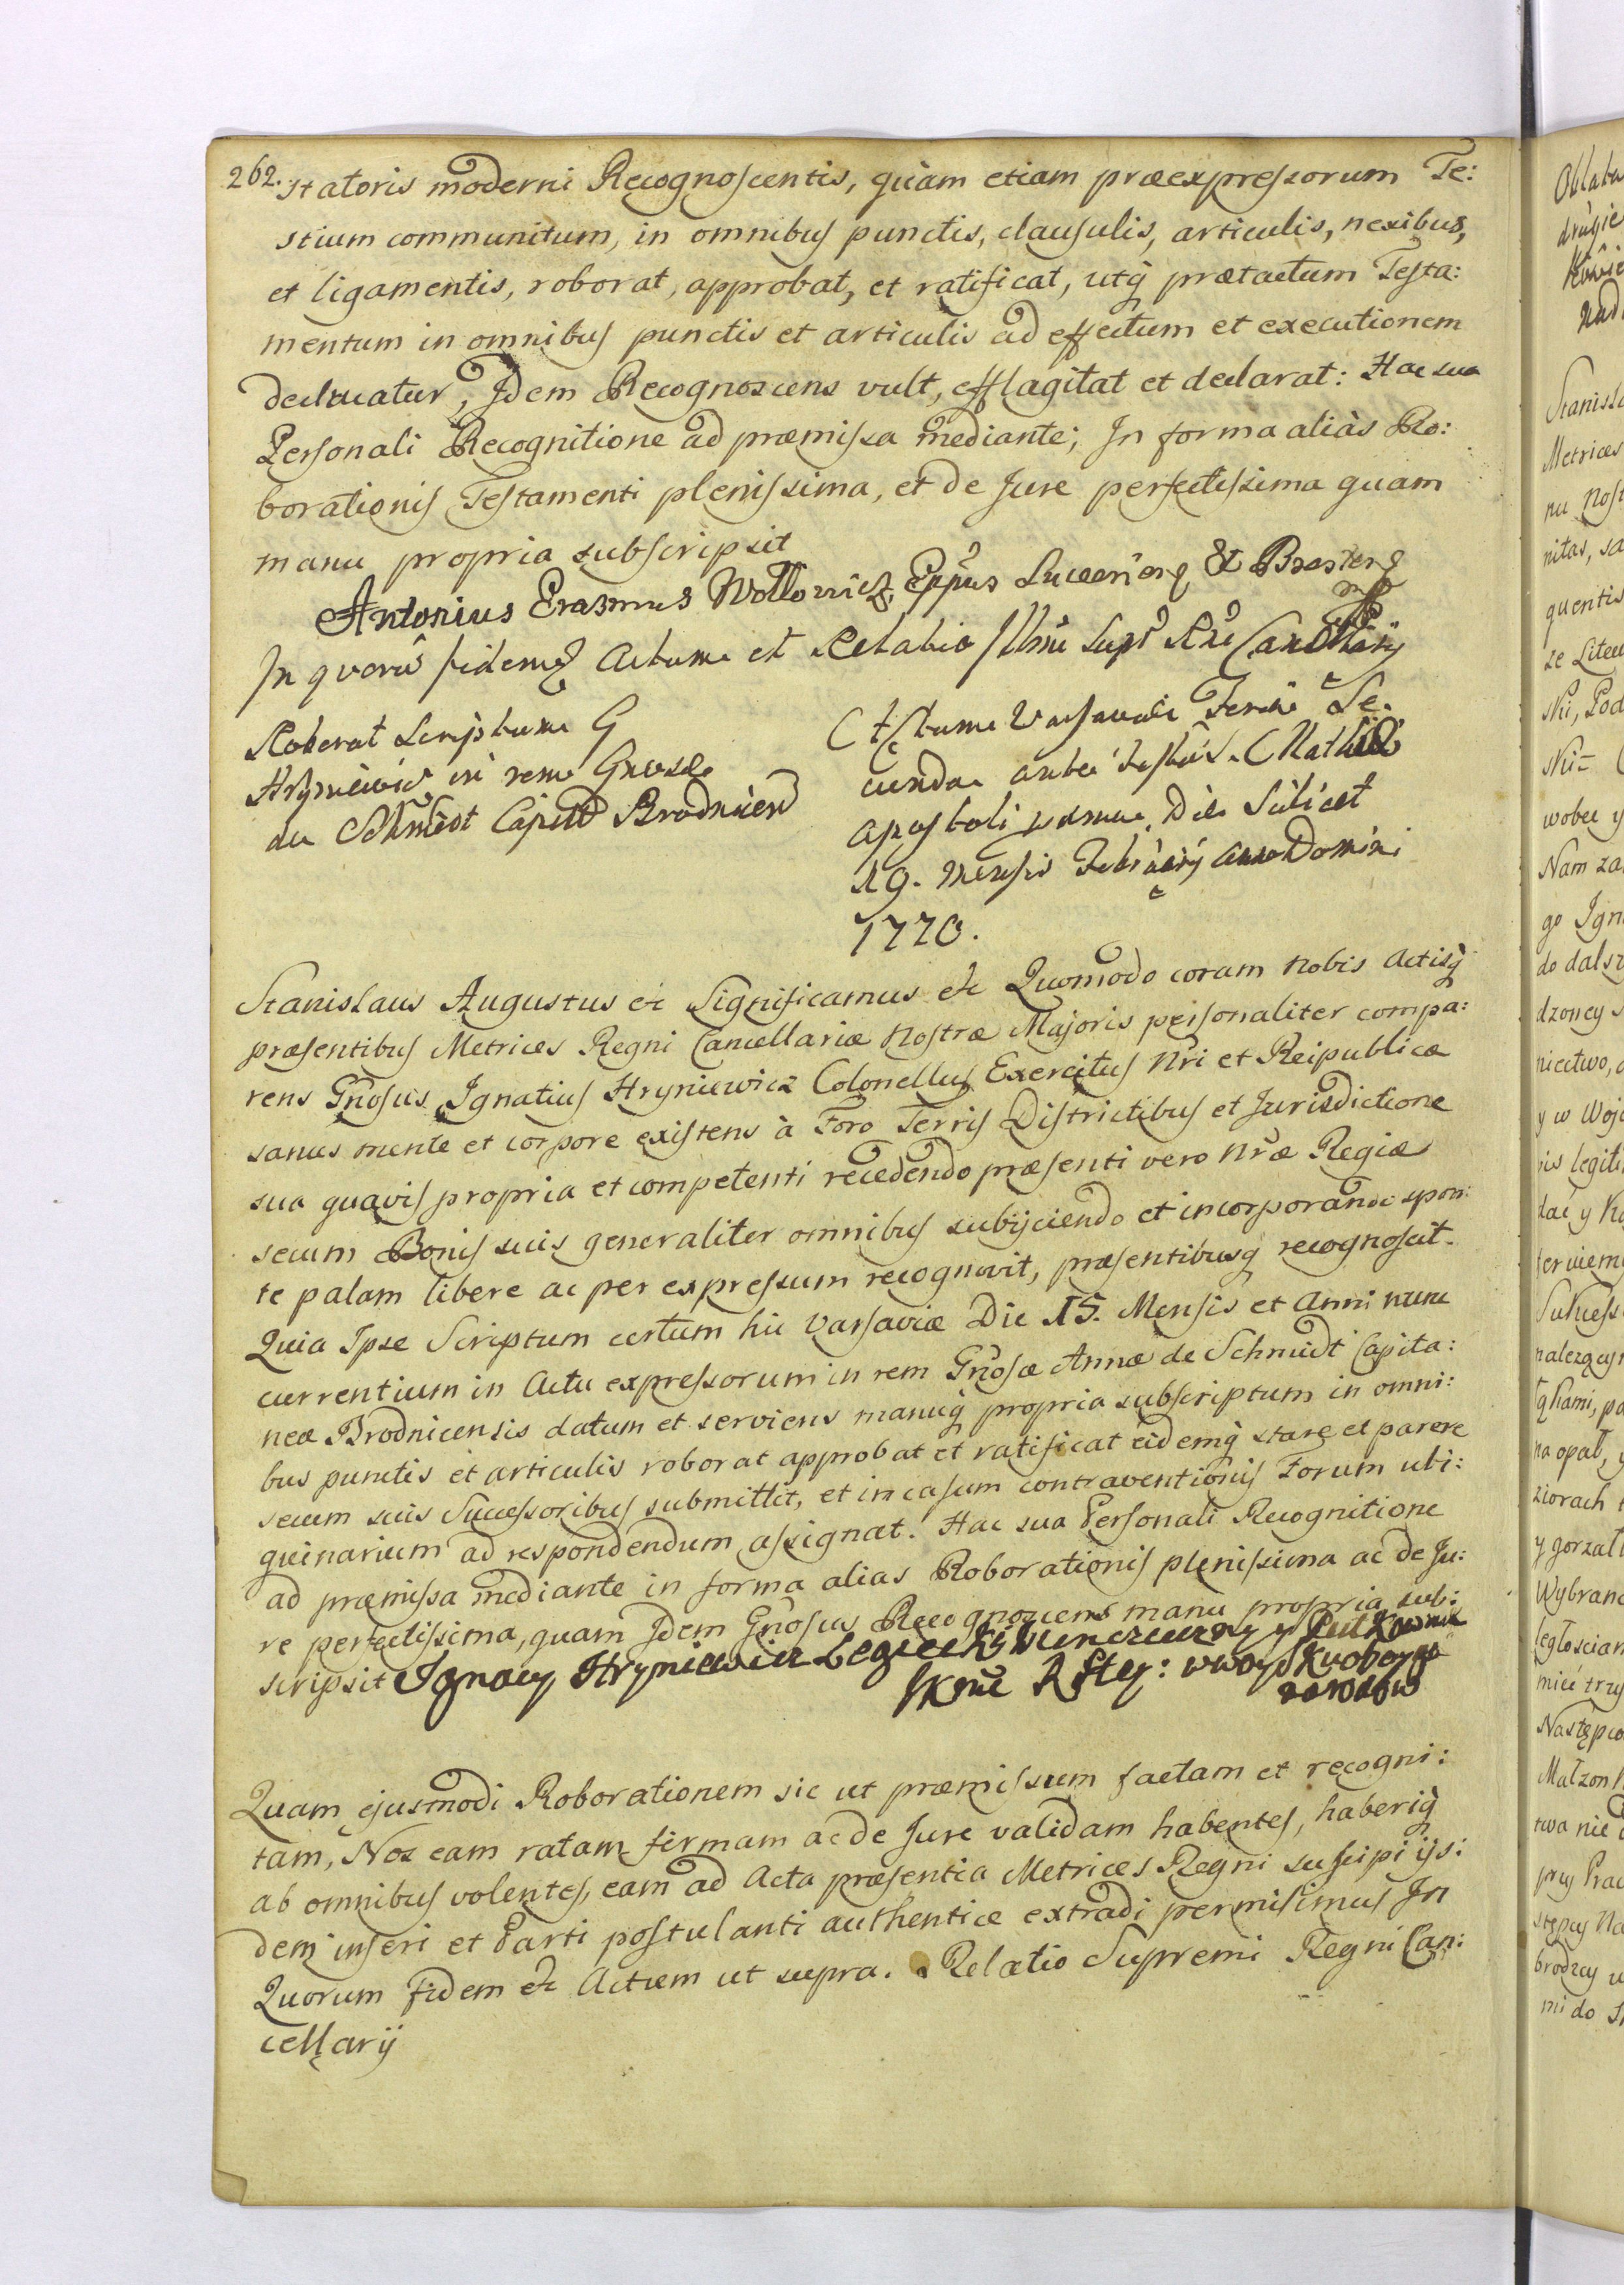 262.
statoris moderni Recognoscentis, quàm etiam præexpressorum Te:
stium communitum, in omnibus punctis, clausulis, articulis, nexibus,
et ligamentis, roborat, approbat, et ratificat, utq̀ prætactum Testa:
mentum in omnibus punctis et articulis ad effectum et executionem
deducatur, Idem Recognoscens vult, efflagitat et declarat: Hac sua
Personali Recognitione ad præmissa mediante; In forma aliàs Ro:
borationis Testamenti plenissima, et de Jure perfectissima quam
manu propria subscripsit
Antonius Erasmus Wołłowicz, Eppus Luceorien, Et Bresten,
mp
In quorū fidem Actum et Relatio Illmi Supr Rni Cancellarij
Roborat Scriptum G
Hryniewicz in rem Gnosæ
de Schmidt Capit Brodnicen
Actum Varsaviæ Feria Se
cunda ante festum Mathiæ
apostoli proxima Die Scilicet
19. Mensis Februarij Anno Domini
1770.
Stanislaus Augustus etc Significamus etc Quomodo coram nobis Actisq̀
præsentibus Metrices Regni Cancellariæ Nostræ Majoris personaliter compa:
rens Gnosus Ignatius Hryniewicz Colonellus Exercitus Nri et Reipublicæ
sanus mente et corpore existens à Foro Terris Districtibus et Jurisdictione
sua quavis propria et competenti recedendo præsenti vero Nræ Regiæ
secum Bonis suis generaliter omnibus subijciendo et incorporando spon:
te palam libere ac per expressum recognovit, præsentibusq̀ recognoscit.
Quia Ipse Scriptum certum hic Varsaviæ Die 15. Mensis et Anni nunc
currentium in Actu expressorum in rem Gnosæ Annæ de Schmidt Capita:
neæ Brodnicensis datum et serviens manuq̀ propria subscriptum in omni:
bus punctis et articulis roborat approbat et ratificat eidemq̀ stare et parere
secum suis Successoribus submittit, et in casum contraventionis Forum ubi:
quinarium ad respondendum assignat. Hac sua Personali Recognitione
ad præmissa mediante in forma alias Roborationis plenissima ac de Ju:
re perfectissima, quam Idem Gnosus Recognoscens manu propria sub:
scripsit Ignacy Hryniewicz
Quam ejusmodi Roborationem sic ut præmissum factam et recogni:
tam, Nos eam ratam firmam ac de Jure validam habentes, haberiq̀
ab omnibus volentes, eam ad Acta præsentia Metrices Regni suscipi ijs:
dem inseri et Parti postulanti authentice extradi permisimus In
Quorum fidem etc Actum ut supra. Relatio Supremi Regni Can:
cellarij